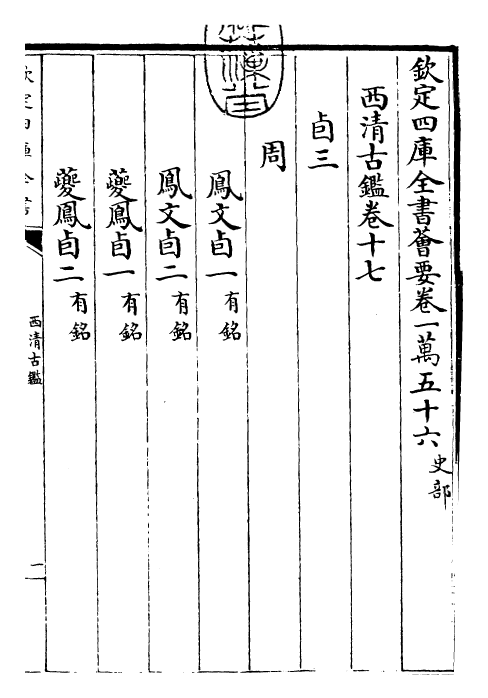 欽定四庫全書薈要卷一萬五十六史部
西清古鑑卷十七
卣三
周
鳳文卣一有銘
鳳文卣二有銘
夔鳳卣一有銘
夔鳳卣二有銘
欽定四庫全書
西清古鑑
二